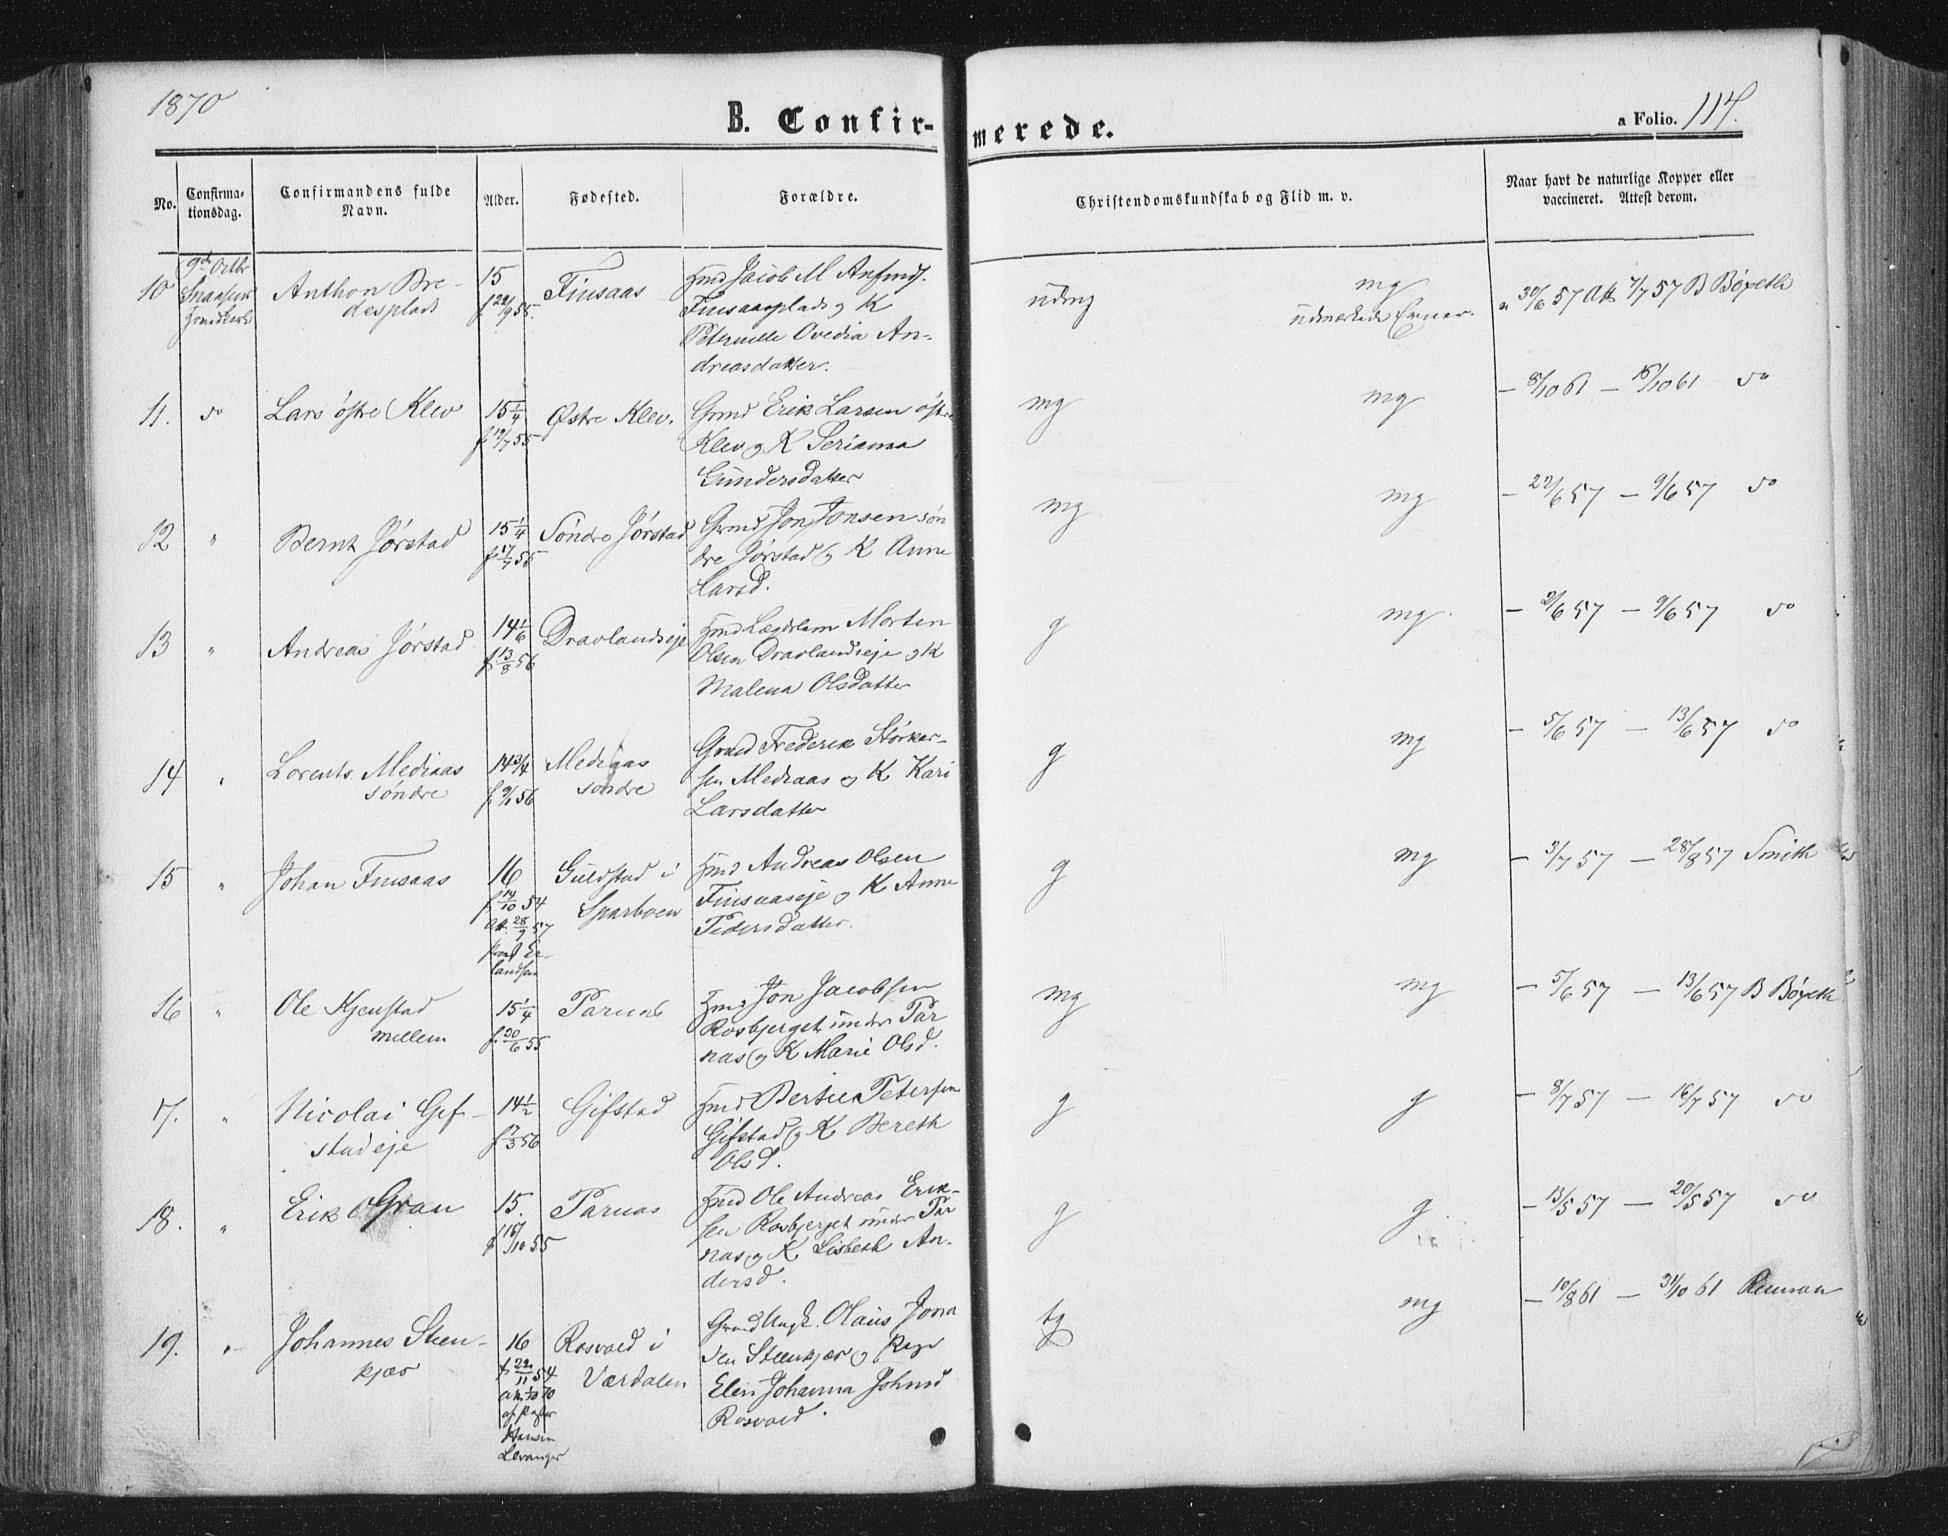 1870
B. Confirmerede.
a Folio. 114.
No.
Confirmationsdag.
Confirmandens fulde Navn.
Alder.
Fødested.
Forældre.
Christendomskundskab og Flid m. v.
Naar havt de naturlige Kopper eller vaccineret. Attest derom.
10
9de Octbr
Anthon Bre-
desplads
15
f 22/9 55.
Finsaas
Hmd Jacob M Anfinds.
Finsaasplads og K
Peternelle Ovedia An-
dreasdatter.
mg
30/6 57 Att 7/7 57 B Bøpeth
11.
do
Lars østre Klev
15 1/4
f 19/7 55
Østre Klev.
Grmd Erik Larsen østre
Klev og K Serianna
Gundersdatter
mg
mg
- 8/10 61 - 16/10 61 do
12
"
Bernt Jørstad
15 1/4
f 17/7 55
Søndre Jørstad
Grmd Jon Jonsen søn
dre Jørstad og K Anne
Larsd.
mg
mg
- 22/6 57 - 9/6 57 do
13
"
Andreas Jørstad
14 1/6
f 13/8 56
Dravlandseje
Hmd Lægdslem Morten
Olsen Dravlandseje og K
Malena Olsdatter
g
mg
- 2/6 57 - 9/6 57 do
14
"
Lorents Mediaas
søndre
14 3/4
f 9/1 56
Mediaas
søndre
Grmd Frederik Størker-
sen Mediaas og K Kari
Larsdatter
g
mg
- 5/6 57 - 13/6 57 do
15
"
Johan Finsaas
16
f 14/10 54
Att. 28/9 57
Guldstad i
Sparboen
Hmd Andreas Olsen
Finsaaseje og K Anne
Pedersdatter.
g
mg
- 3/7 57 - 28/8 57 Smith
16
"
Ole Kjenstad
mellem
15 1/4
f 30/6 55
Parnas
Hmd Jon Jacobsen
Rosbjerget under Par
nas og K Marie Olsd.
mg
mg
- 5/6 57 - 13/6 57 B Bøpeth
17.
"
Nicolai Gif-
stadeje
14 1/2
f 7/3 56
Gifstad
Hmd Bertil Petersen
Gifstad og K Bereth
Olsd.
g
g
- 8/7 57 - 16/7 57 do
18.
"
Erik Gran
15.
Parnas
Hmd Ole Andreas Erik-
sen Rosbjerget under Par
nas og K Lisbeth An-
dersd.
g
g
- 13/5 57 - 20/5 57 do
19.
"
Johannes Steen-
kjær
16
f 22/11 54
Att 1/10 70
Hansen
Levanger
Rosvold i
Værdalen
Olaus Jona
sen Steenkjær og Pige
Elen Johanna Johnsd
Rosvold.
tg
mg
- 10/8 61 - 31/10 61